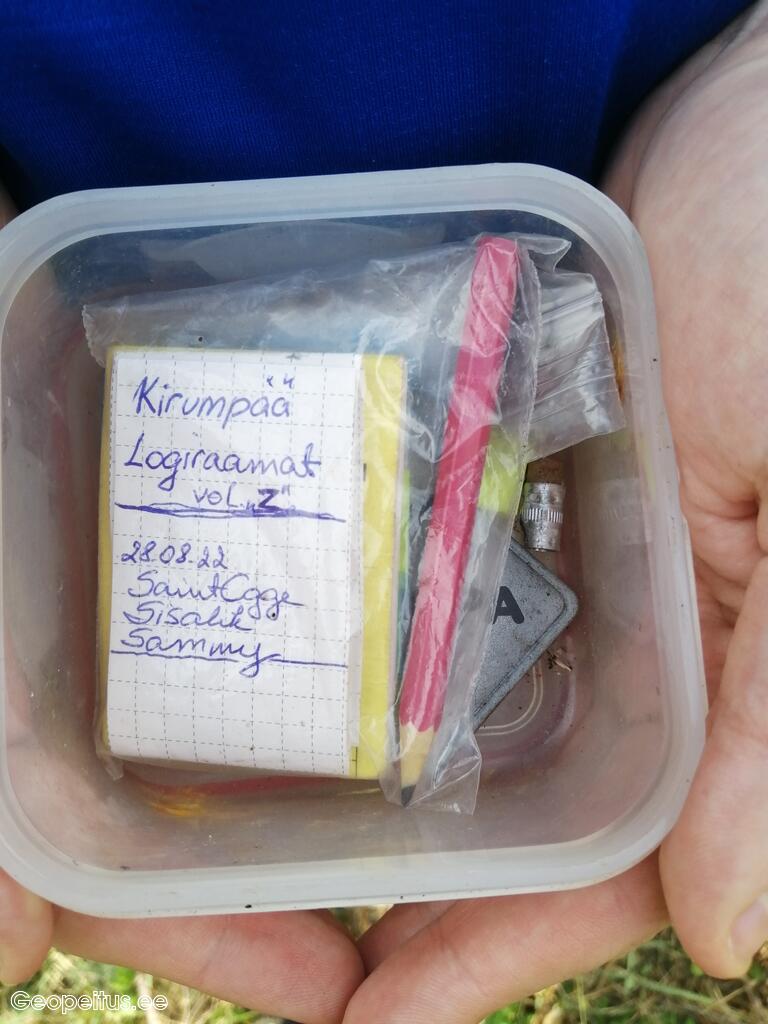 Kirumpää
Logiraamat
vol. "2"
28.08.22
SaintEgge
Sisalik
Sammy
A
Geopeitus.ee